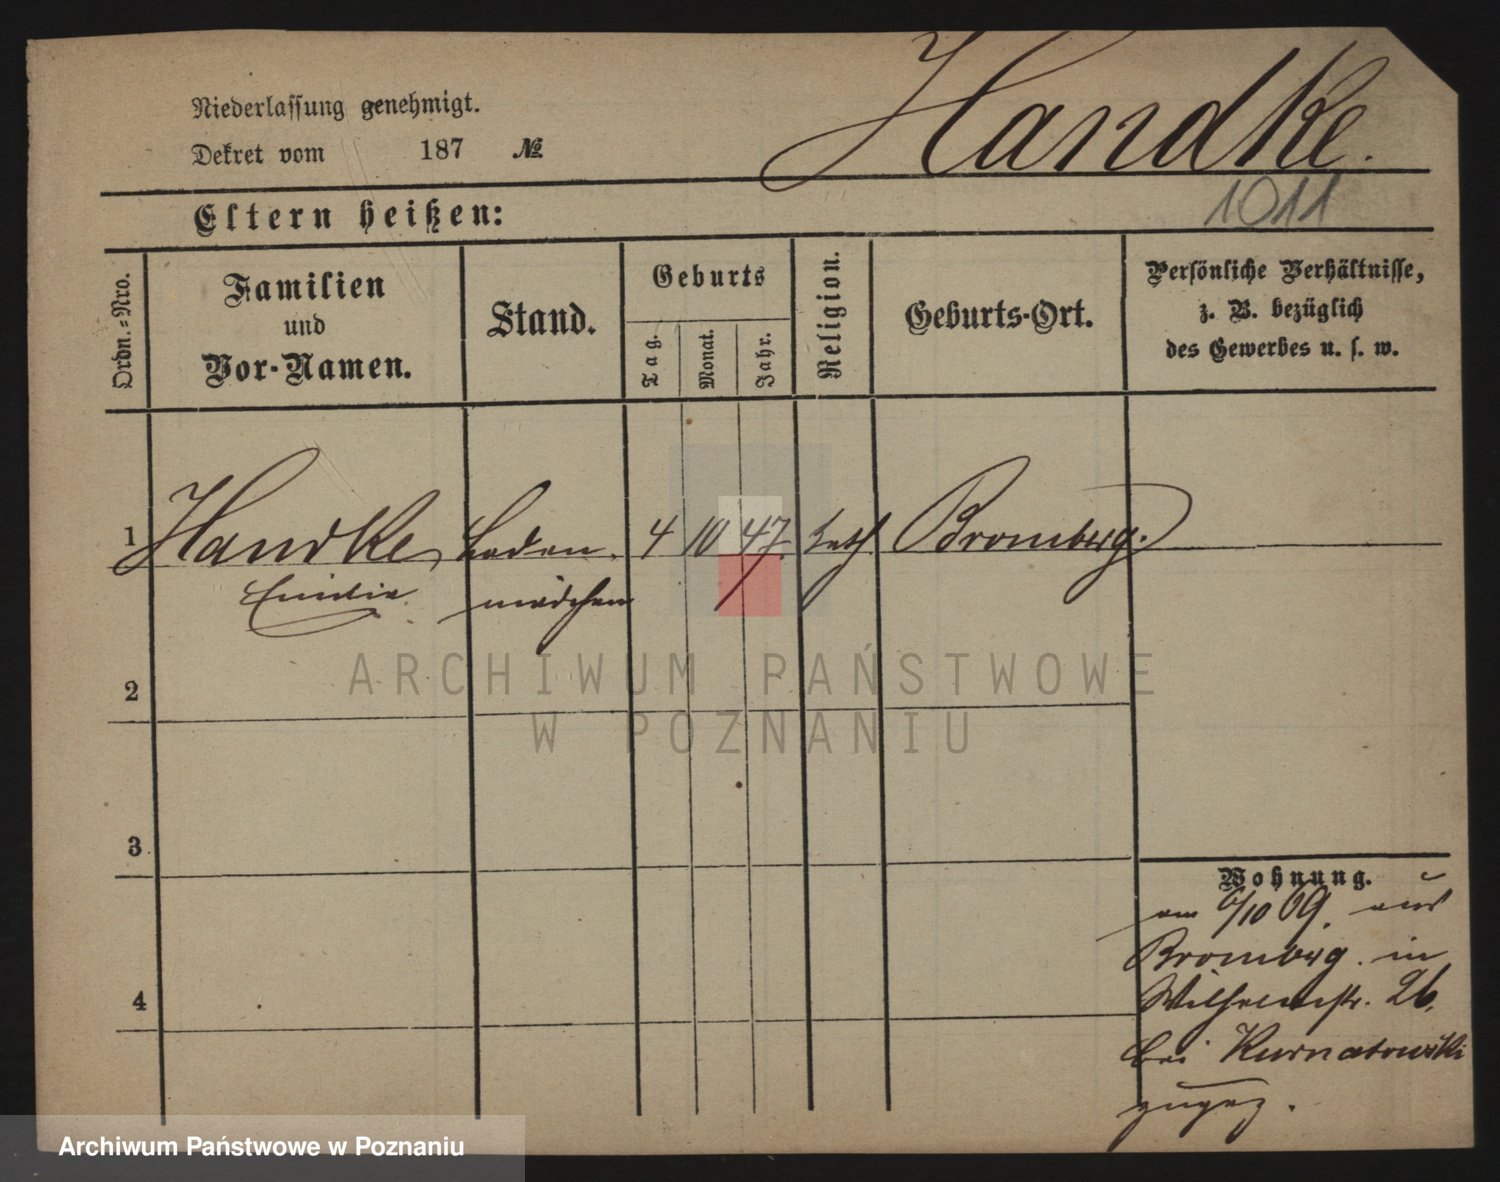 Handke.
Niederlassung genehmigt.
Dekret vom 187 №
1011
Eltern heißen:
Ordn.=Nro.
Familien
und
Vor-Namen.
Stand.
Geburts
Tag.
Monat.
Jahr.
Religion.
Geburts-Ort.
Persönliche Verhältnisse,
z. B. bezüglich
des Gewerbes u. s. w.
1 Handke, Laden 4 10 47. kath Bromberg.
Emilie mädchen
ARCHIWUM PAŃSTWOWE
2
W POZNANIU
3
Wohnung.
am 6/10 69. aus
Bromberg. in
4 Wilhelmstr. 26.
bei Kurnatowski
zugez.
Archiwum Państwowe w Poznaniu